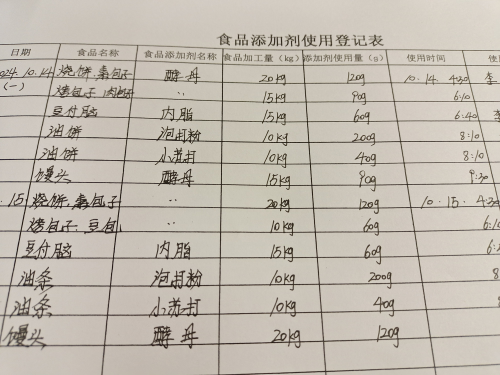 食品添加剂使用登记表
日期 食品名称 食品添加剂名称 食品加工量(kg) 添加剂使用量(g) 使用时间
2024.10.14 烧饼.素包子 酵母 20kg 120g 10.14. 4:30 李
(一) 烤包子 肉包子 〃 15kg 90g 6:10
豆付脑 内脂 15kg 60g 6:40 李
油饼 泡打粉 10kg 200g 8:10
油饼 小苏打 10kg 40g 8:10
馒头 酵母 15kg 90g 9:30
.15 烧饼.素包子 〃 20kg 120g 10.15. 4:30
烤包子.豆包. 〃 10kg 60g 6:10
豆付脑 内脂 15kg 60g
油条 泡打粉 10kg 200g 8
油条 小苏打 10kg 40g
馒头 酵母 20kg 120g